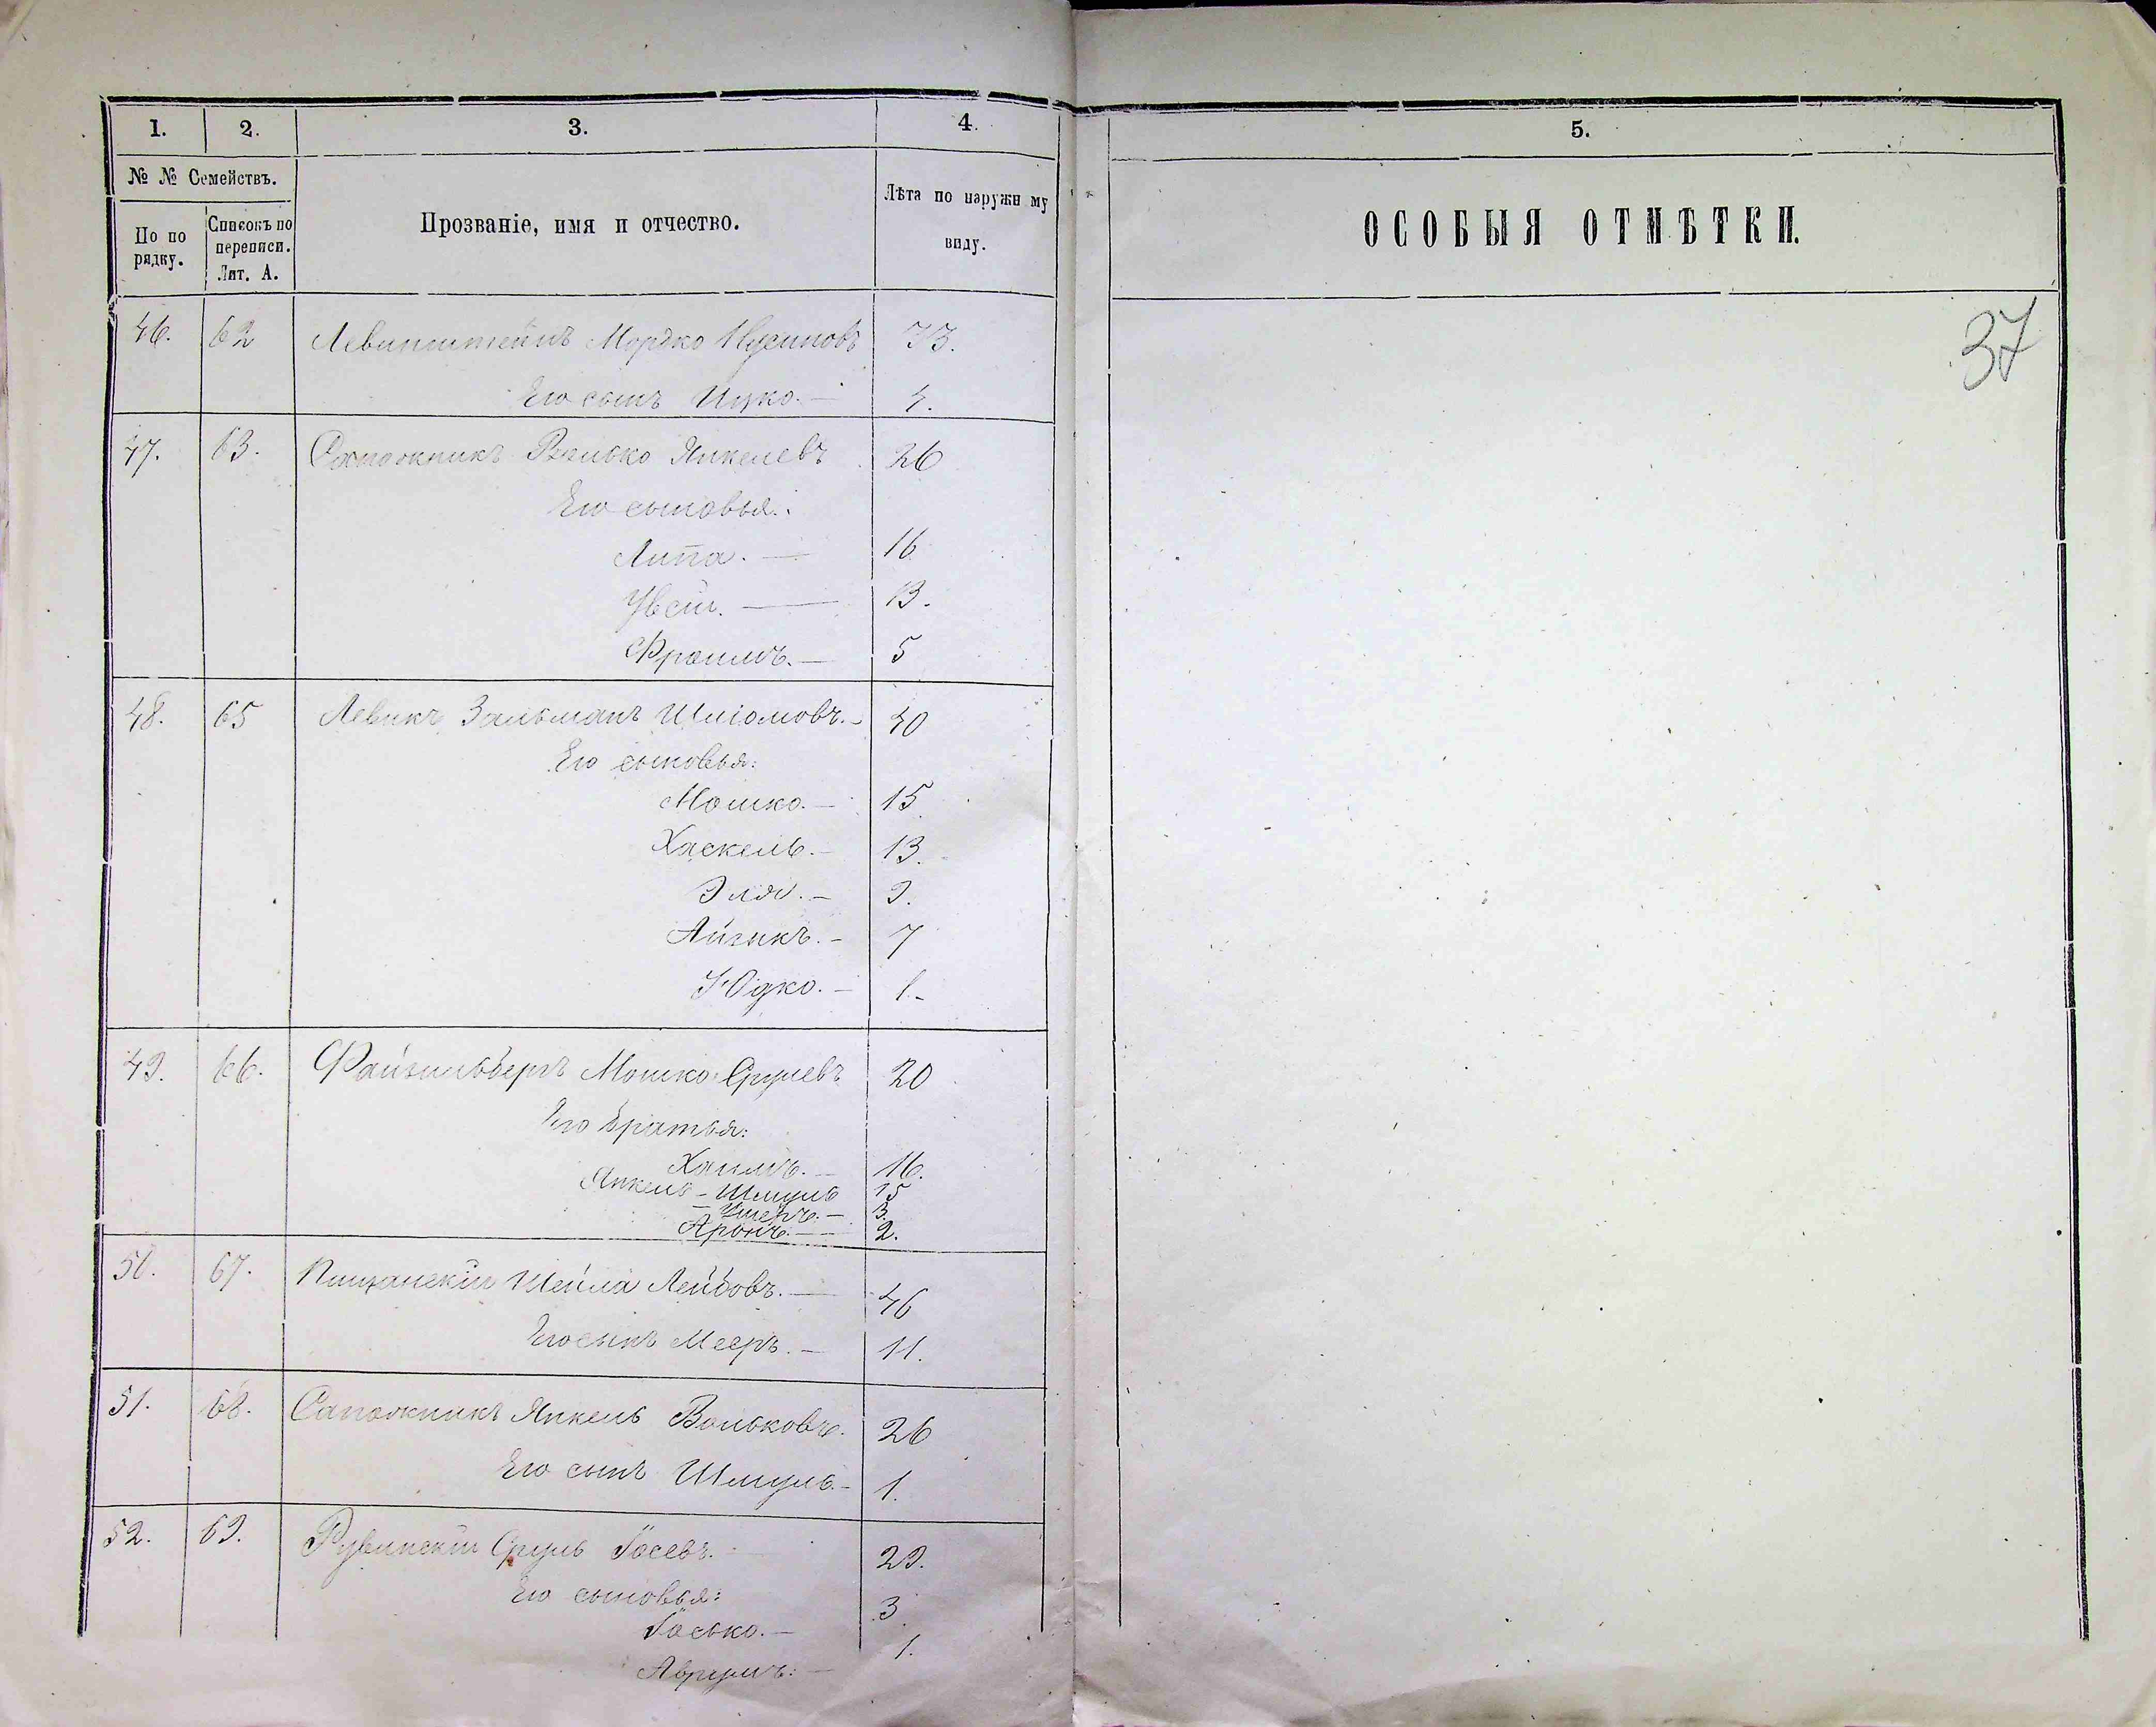 1. 2. 3. 4. 5.
№ № Семействъ.
По по рядку.
Списокъ по переписи. Лит. А.
Прозваніе, имя и отчество.
Лѣта по наружн му виду.
ОСОБЫЯ ОТМѢТКИ.
37
46. 62 Левинштейнъ Мордко Нусиновъ 33.
Его сынъ Ицко. — 4.
47. 63. Волько Янкелевъ 26
Его сыновья:
Липа. — 16
13.
Фроимъ. — 5
48. 65 Левикъ Зальманъ Шліомовъ. — 40
Его сыновья:
Мошко. — 15
Хаскель. — 13.
Эля. — 9.
Айзикъ. — 7
Юдко. — 1. -
49. 66. Файзильбергъ Мошко Срулевъ 20
Его братья:
Хаимъ. — 16.
Янкель - Шмуль 15
3.
Аронъ. — 2.
50. 67. Пищанскій Шейла Лейбовъ. — 46
Его сынъ Мееръ. — 11.
51. 68. Сапожникъ Янкель Вольковъ. 26
Его сынъ Шмуль. - 1.
52. 69. Рувинскій Сруль Іосевъ. 29.
Его сыновья:
Іосько. — 3
Аврумъ. — 1.